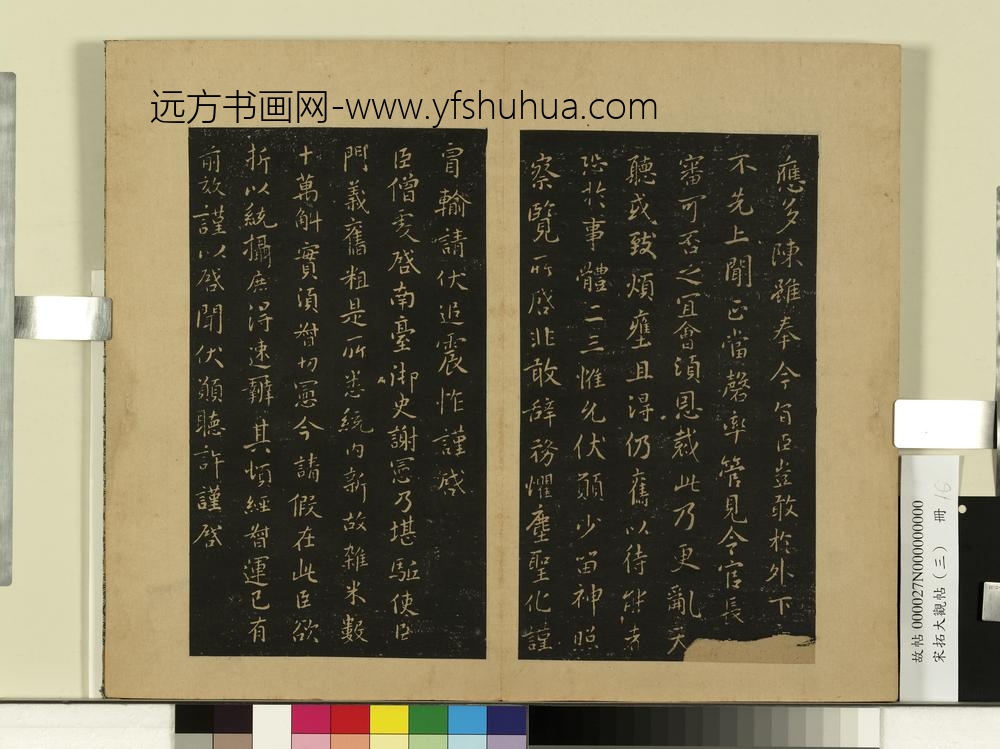 远方书画网-www.yfshuhua.com
應多陳雖奉今旨臣豈敢於外下
不先上聞正當罄率管見今官長
審可否之宜會須恩裁此乃更亂天
聽或致煩壅且得仍舊以待能者
恐於事體二三惟允伏願少留神照
察覽所啓非敢辭務懼塵聖化謹
冒輸請伏追震怍謹啓
臣僧虔啓南臺御史謝憲乃堪驅使臣
門義舊粗是所悉統內新故雜米數
十萬斛實須督切憲今請假在此臣欲
折以統攝庶得速辦其頃經督運已有
前放謹以啓聞伏願聽許謹啓
故帖 000027N000000000
宋拓大觀帖（三） 冊 16